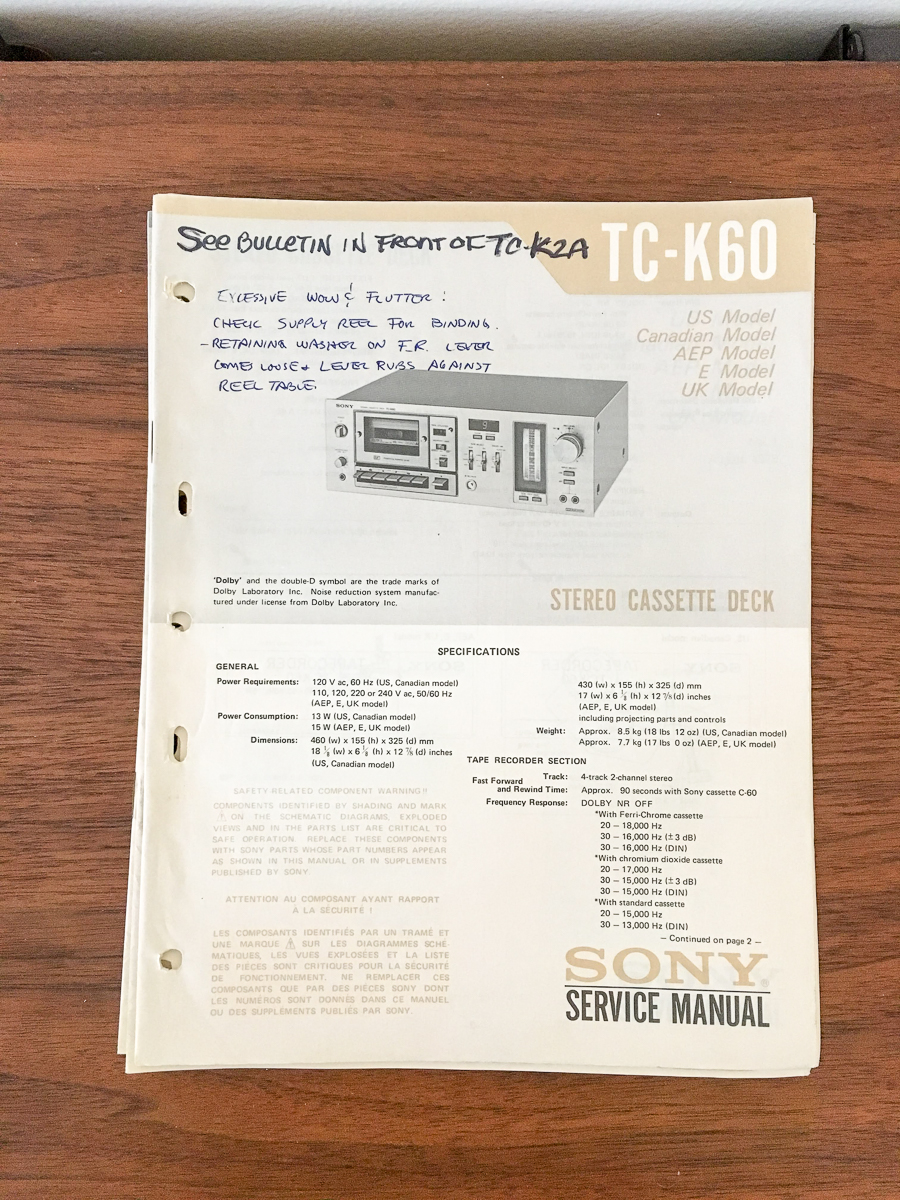 See BULLETIN IN FRONT OF TC-K2A
TC-K60
EXCESSIVE WOW & FLUTTER :
CHECK SUPPLY REEL FOR BINDING.
- RETAINING WASHER ON F.R. LEVER
COMES LOOSE & LEVER RUBS AGAINST
REEL TABLE.
US Model
Canadian Model
AEP Model
E Model
UK Model
SONY
'Dolby' and the double-D symbol are the trade marks of
Dolby Laboratory Inc. Noise reduction system manufac-
tured under license from Dolby Laboratory Inc.
STEREO CASSETTE DECK
SPECIFICATIONS
GENERAL
Power Requirements: 120 V ac, 60 Hz (US, Canadian model)
110, 120, 220 or 240 V ac, 50/60 Hz
(AEP, E, UK model)
Power Consumption: 13 W (US, Canadian model)
15 W (AEP, E, UK model)
Dimensions: 460 (w) x 155 (h) x 325 (d) mm
18 1/8 (w) x 6 1/8 (h) x 12 7/8 (d) inches
(US, Canadian model)
SAFETY RELATED COMPONENT WARNING!!
COMPONENTS IDENTIFIED BY SHADING AND MARK
⚠ ON THE SCHEMATIC DIAGRAMS, EXPLODED
VIEWS AND IN THE PARTS LIST ARE CRITICAL TO
SAFE OPERATION. REPLACE THESE COMPONENTS
WITH SONY PARTS WHOSE PART NUMBERS APPEAR
AS SHOWN IN THIS MANUAL OR IN SUPPLEMENTS
PUBLISHED BY SONY.
ATTENTION AU COMPOSANT AYANT RAPPORT
À LA SÉCURITÉ !
LES COMPOSANTS IDENTIFIÉS PAR UN TRAMÉ ET
UNE MARQUE ⚠ SUR LES DIAGRAMMES SCHÉ-
MATIQUES, LES VUES EXPLOSÉES ET LA LISTE
DES PIÈCES SONT CRITIQUES POUR LA SÉCURITÉ
DE FONCTIONNEMENT. NE REMPLACER CES
COMPOSANTS QUE PAR DES PIÈCES SONY DONT
LES NUMÉROS SONT DONNÉS DANS CE MANUEL
OU DES SUPPLÉMENTS PUBLIÉS PAR SONY.
430 (w) x 155 (h) x 325 (d) mm
17 (w) x 6 1/8 (h) x 12 7/8 (d) inches
(AEP, E, UK model)
including projecting parts and controls
Weight: Approx. 8.5 kg (18 lbs 12 oz) (US, Canadian model)
Approx. 7.7 kg (17 lbs 0 oz) (AEP, E, UK model)
TAPE RECORDER SECTION
Track: 4-track 2-channel stereo
Fast Forward
and Rewind Time: Approx. 90 seconds with Sony cassette C-60
Frequency Response: DOLBY NR OFF
*With Ferri-Chrome cassette
20 – 18,000 Hz
30 – 16,000 Hz (±3 dB)
30 – 16,000 Hz (DIN)
*With chromium dioxide cassette
20 – 17,000 Hz
30 – 15,000 Hz (±3 dB)
30 – 15,000 Hz (DIN)
*With standard cassette
20 – 15,000 Hz
30 – 13,000 Hz (DIN)
– Continued on page 2 –
SONY®
SERVICE MANUAL